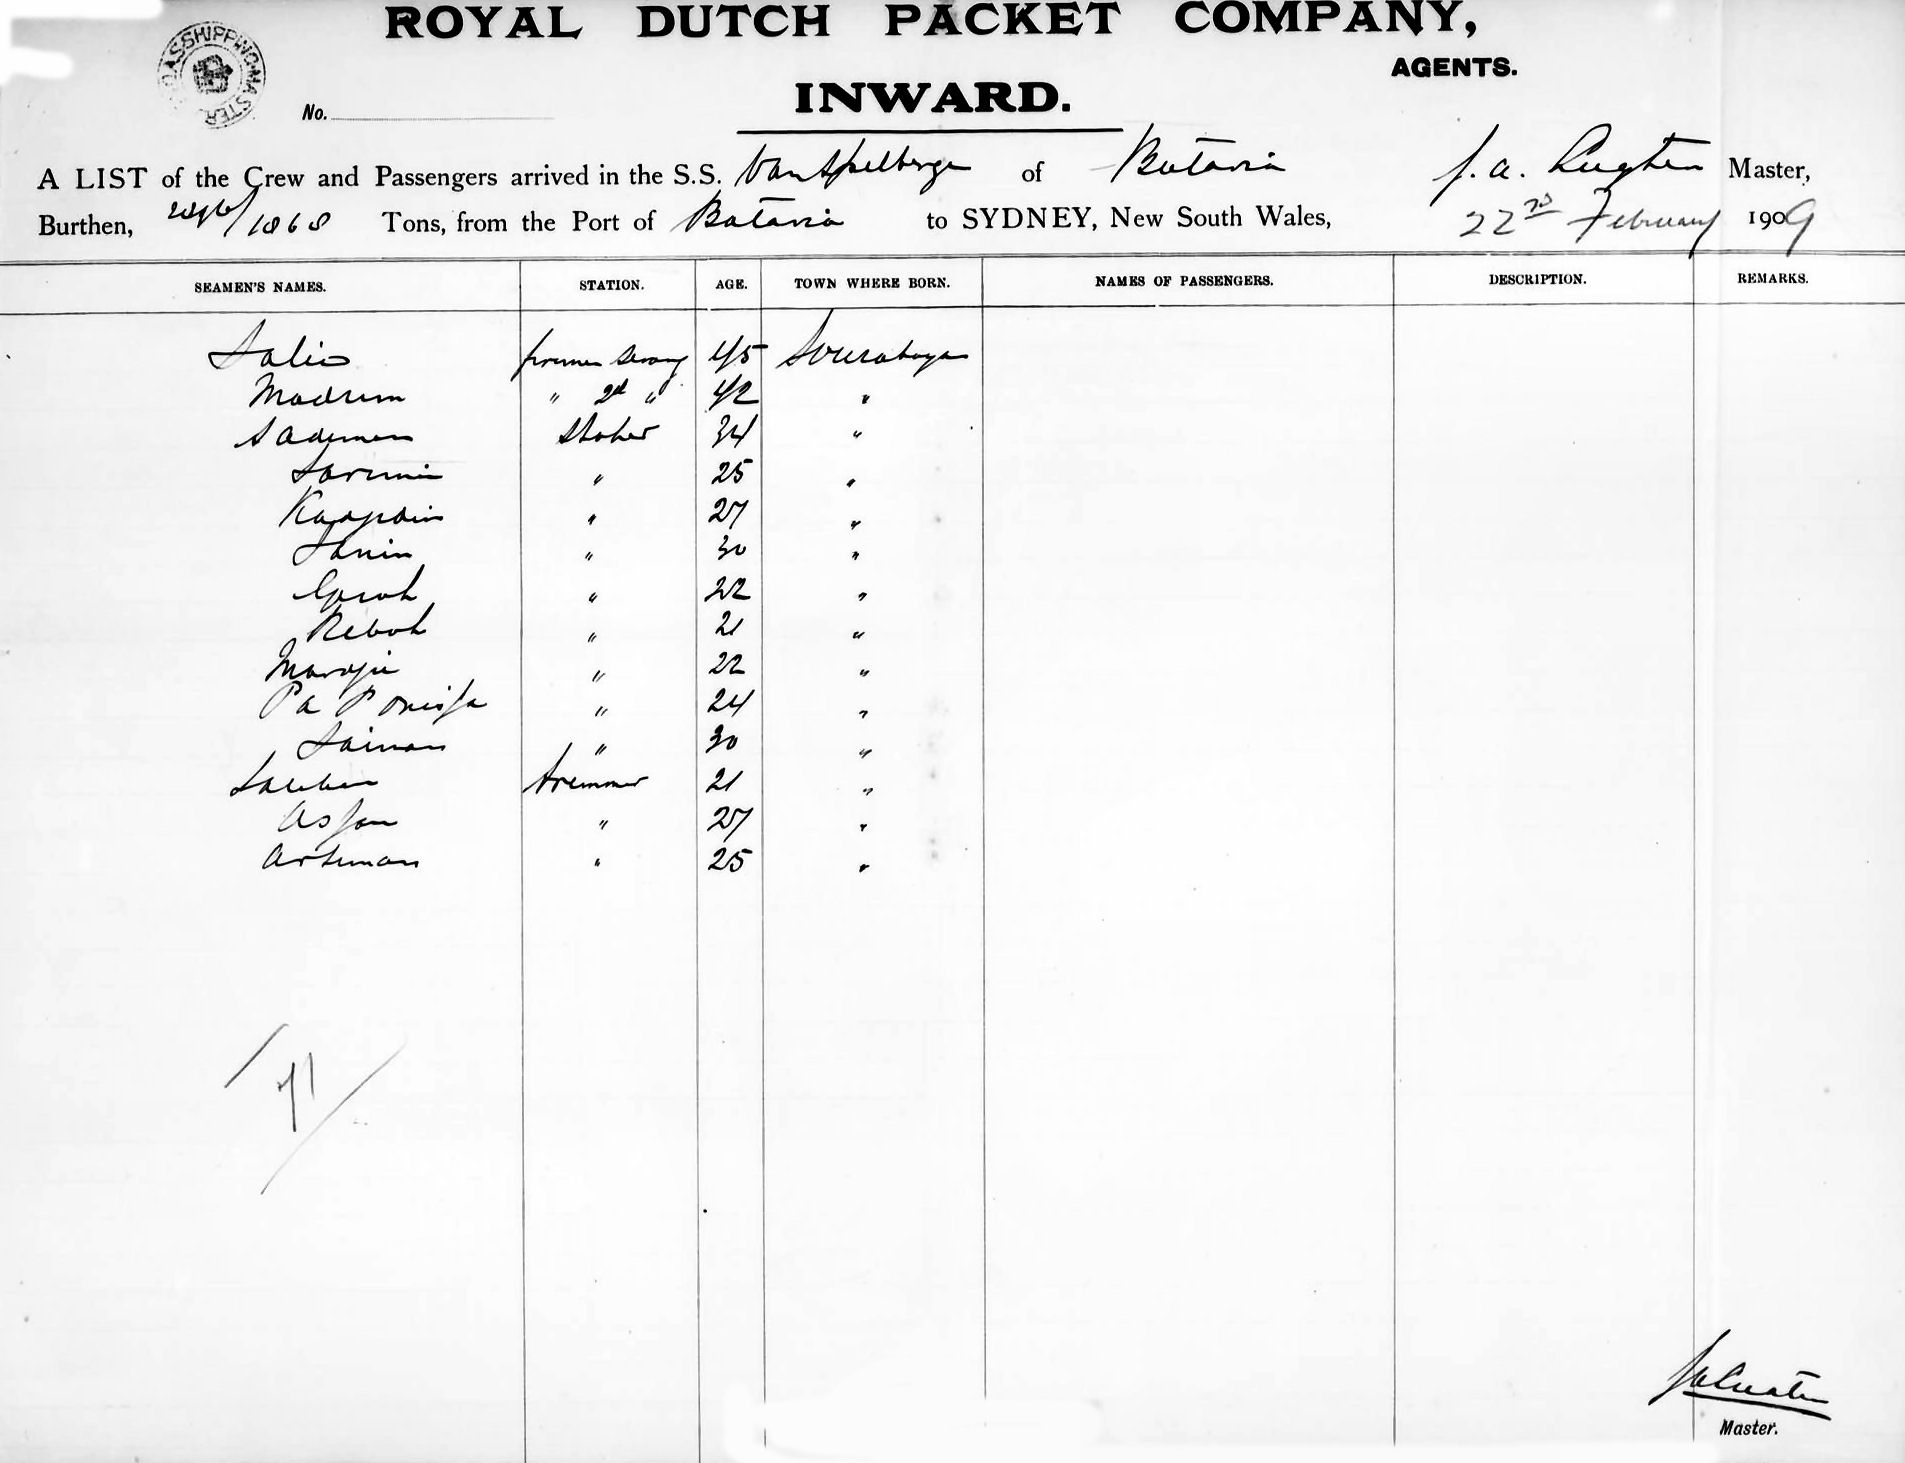 ROYAL DUTCH PACKET COMPANY,
AGENTS.
INWARD.
No.
A LIST of the Crew and Passengers arrived in the S.S. Van Spilbergen of Batavia J. A. Lugten Master,
Burthen, /1868 Tons, from the Port of Batavia to SYDNEY, New South Wales, 22nd February 1909
SEAMEN'S NAMES. STATION. AGE. TOWN WHERE BORN. NAMES OF PASSENGERS. DESCRIPTION. REMARKS.
Salio firemen Serang 45 Sourabaya
Madrim " 2d " 42 "
Sadiman Stoker 34 "
Sarimin " 25 "
" 27 "
Sanin " 30 "
" 22 "
Rebok " 21 "
Mardjie " 22 "
Pa " 24 "
Saiman " 30 "
trimmer 21 "
Asjan " 27 "
Artiman " 25 "
71
Master.